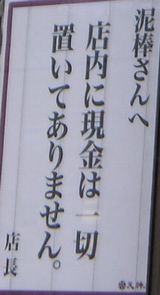 泥棒さんへ
店内に現金は一切
置いてありません。
店長